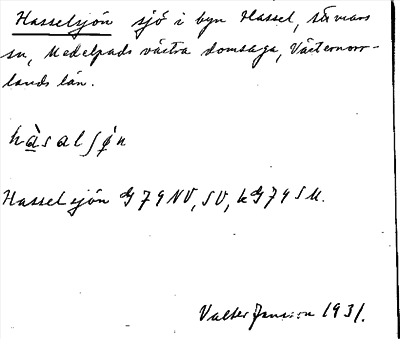 Hasselsjön sjö i byn Hassel, Stöde
sn, Medelpads västra domsaga, Västernorr-
lands län.
hàsalʃø̀n
Hasselsjön G 79 NV, SV, kG 79 SU.
Valter Jansson 1931.